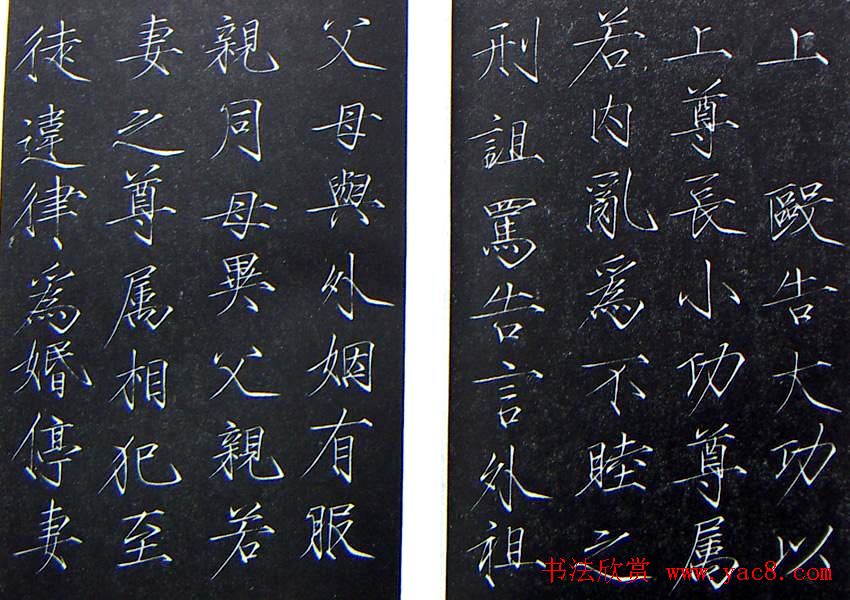 上　殴告大功以
上尊長小功尊属
若内亂為不睦之
刑詛罵告言外祖
父母與外姻有服
親同母異父親若
妻之尊属相犯至
徒違律爲婚停妻
书法欣赏 www.yac8.com